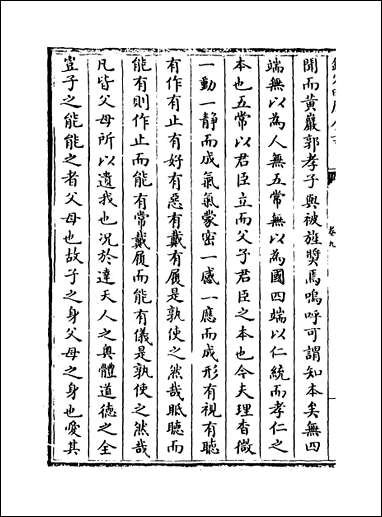 聞而黃巖郭孝子與被旌奬焉嗚呼可謂知本矣無四
端無以為人無五常無以為國四端以仁統而孝仁之
本也五常以君臣立而父子君臣之本也今夫理杳微
一動一靜而成氣氣蒙密一感一應而成形有視有聽
有作有止有好有惡有戴有履是孰使之然哉眡聽而
能有則作止而能有常戴履而能有儀是孰使之然哉
凡皆父母所以遺我也况於達天人之奧體道德之全
豈子之能能之者父母也故子之身父母之身也愛其
卷九